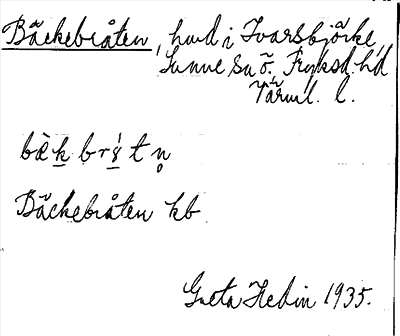 Bäckebråten, hmd i Ivarsbjörke,
Sunne sn ö. Fryksd. hd
Värml. l.
Bäckebråten kb
Greta Hedin 1935.